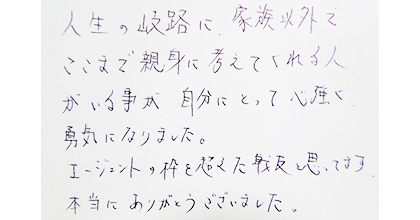 人生の岐路に、家族以外で
ここまで親身に考えてくれる人
がいる事が、自分にとって心強く、
勇気になりました。
エージェントの枠を超えた戦友と思ってます。
本当にありがとうございました。